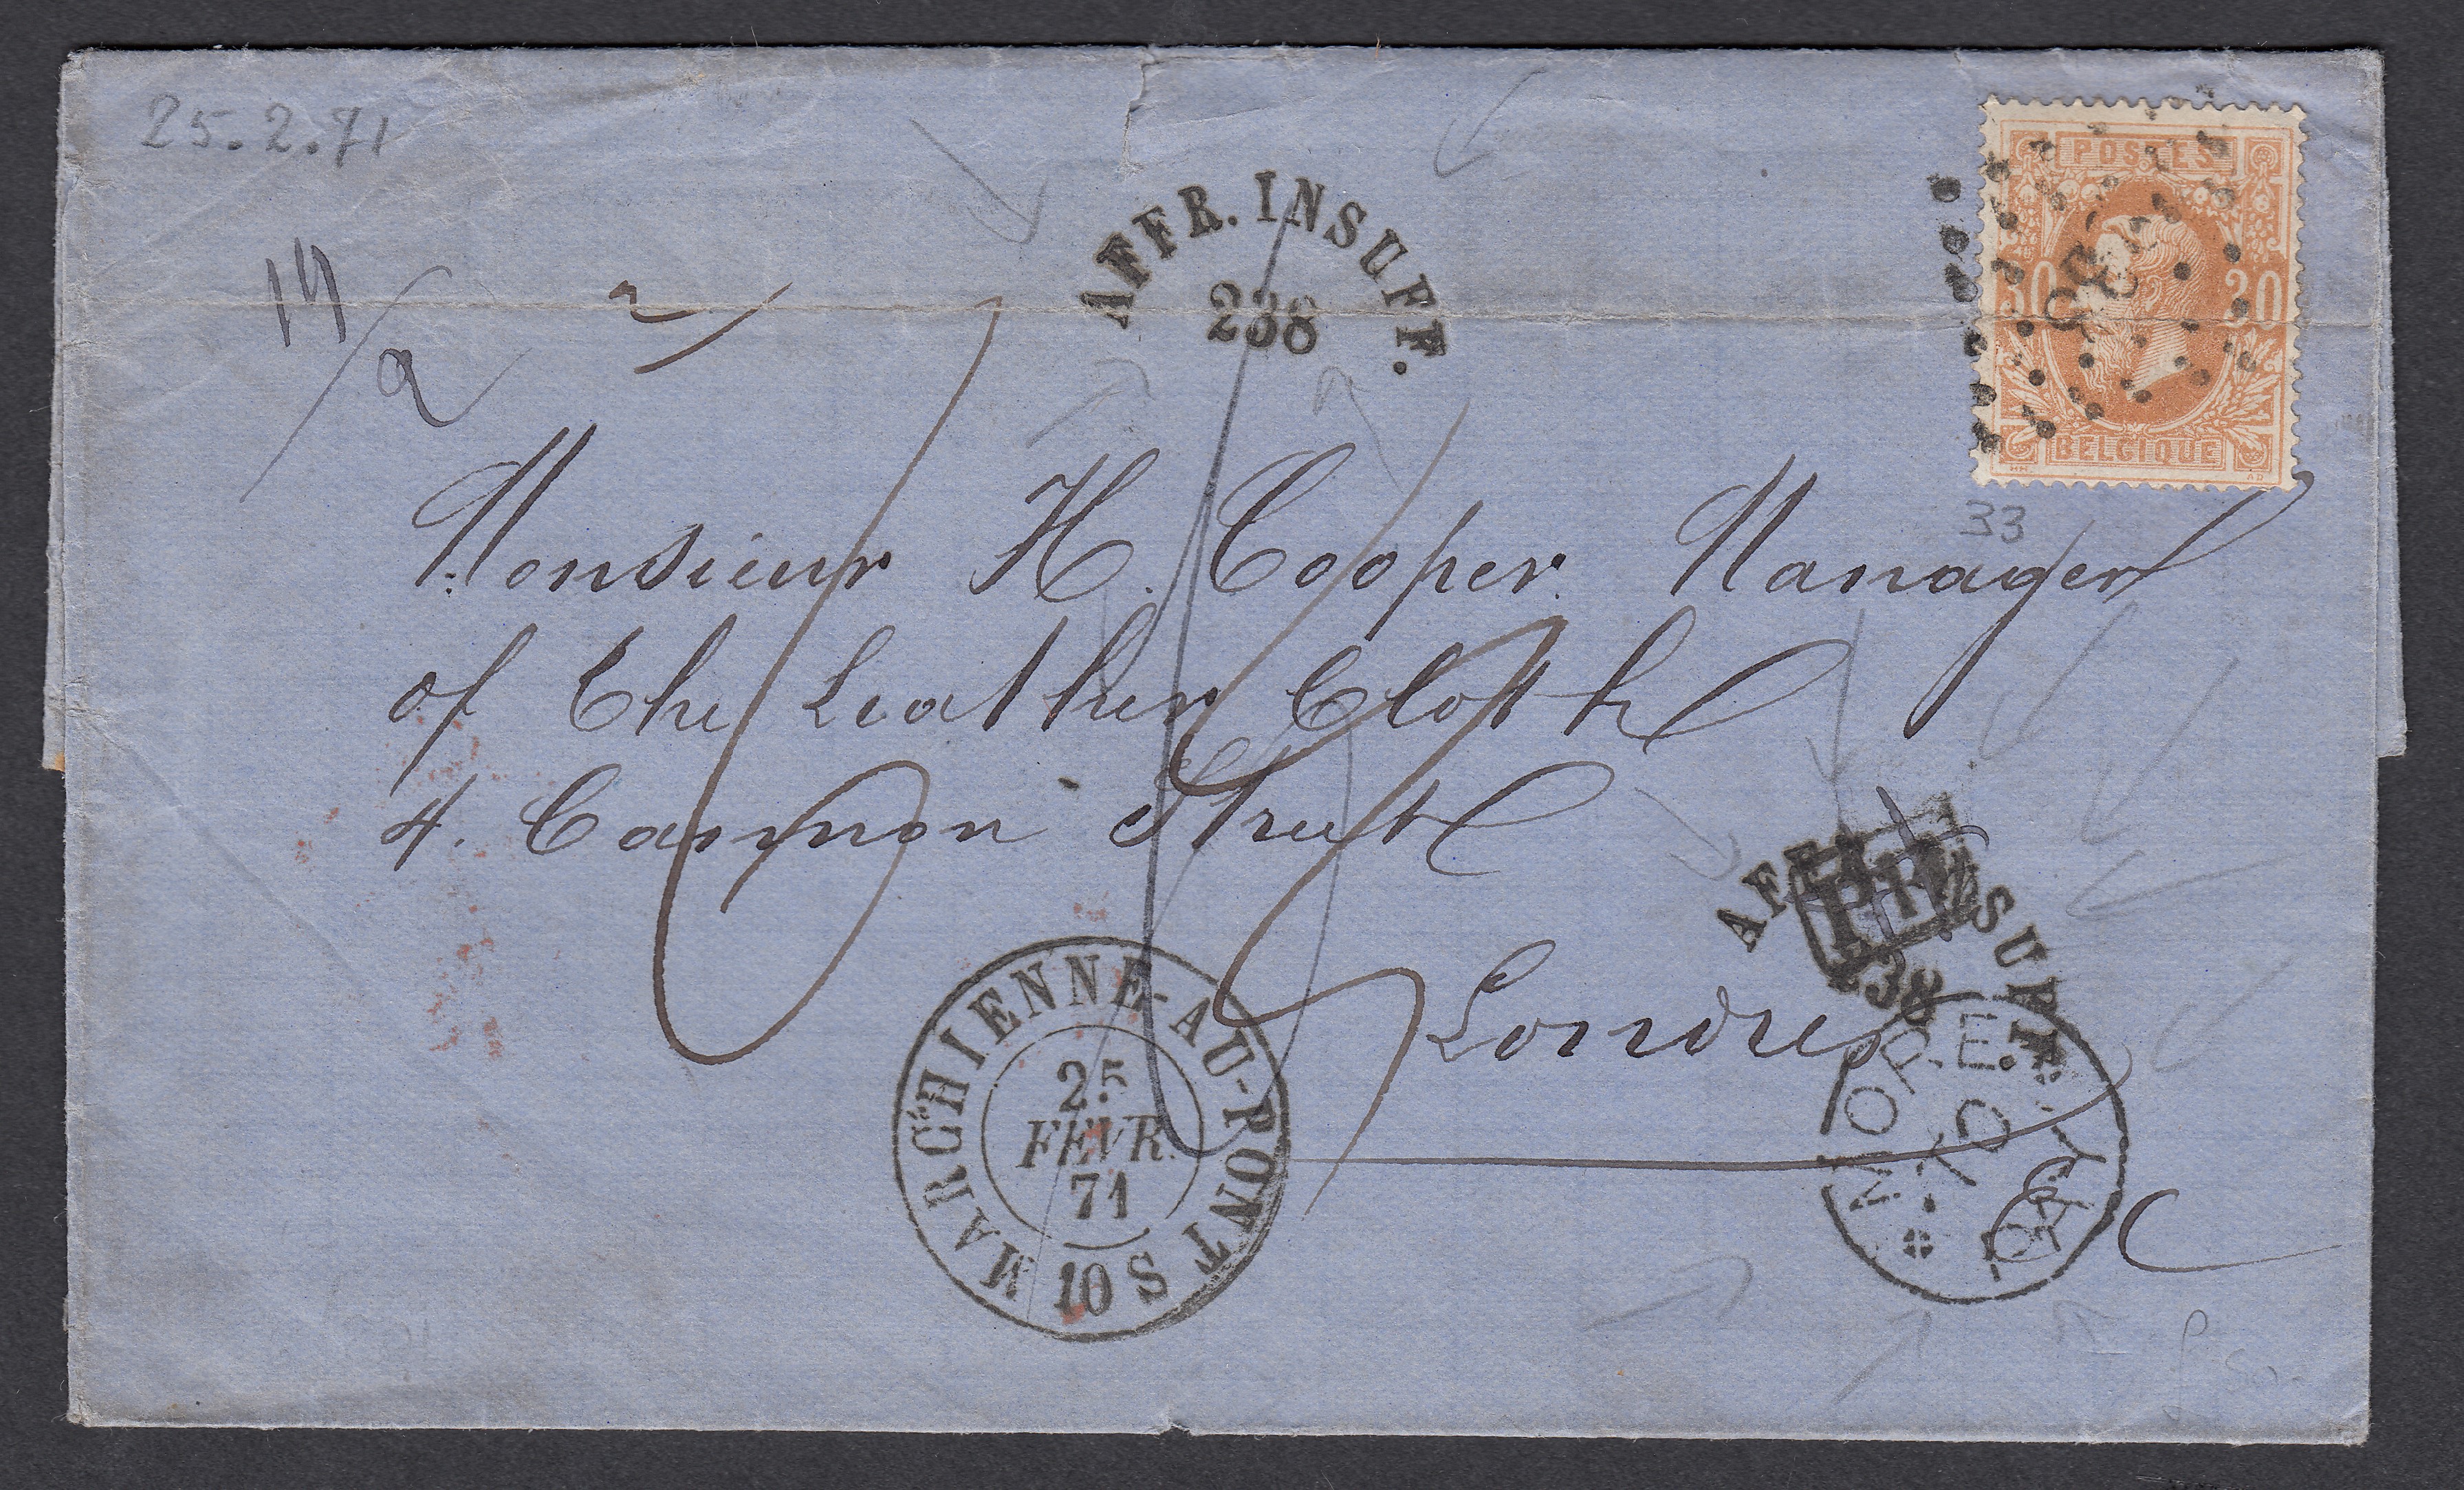 25.2.71
AFFR. INSUFF.
238
POSTES
30 30
BELGIQUE
HN AD
33
Monsieur H. Cooper Manager
of the Leather Cloth
4. Cannon Street
Londres
E C
AFFR. INSUFF.
238
MORE-TO-PAY
MARCHIENNE-AU-PONT
25
FEVR.
71
10 S